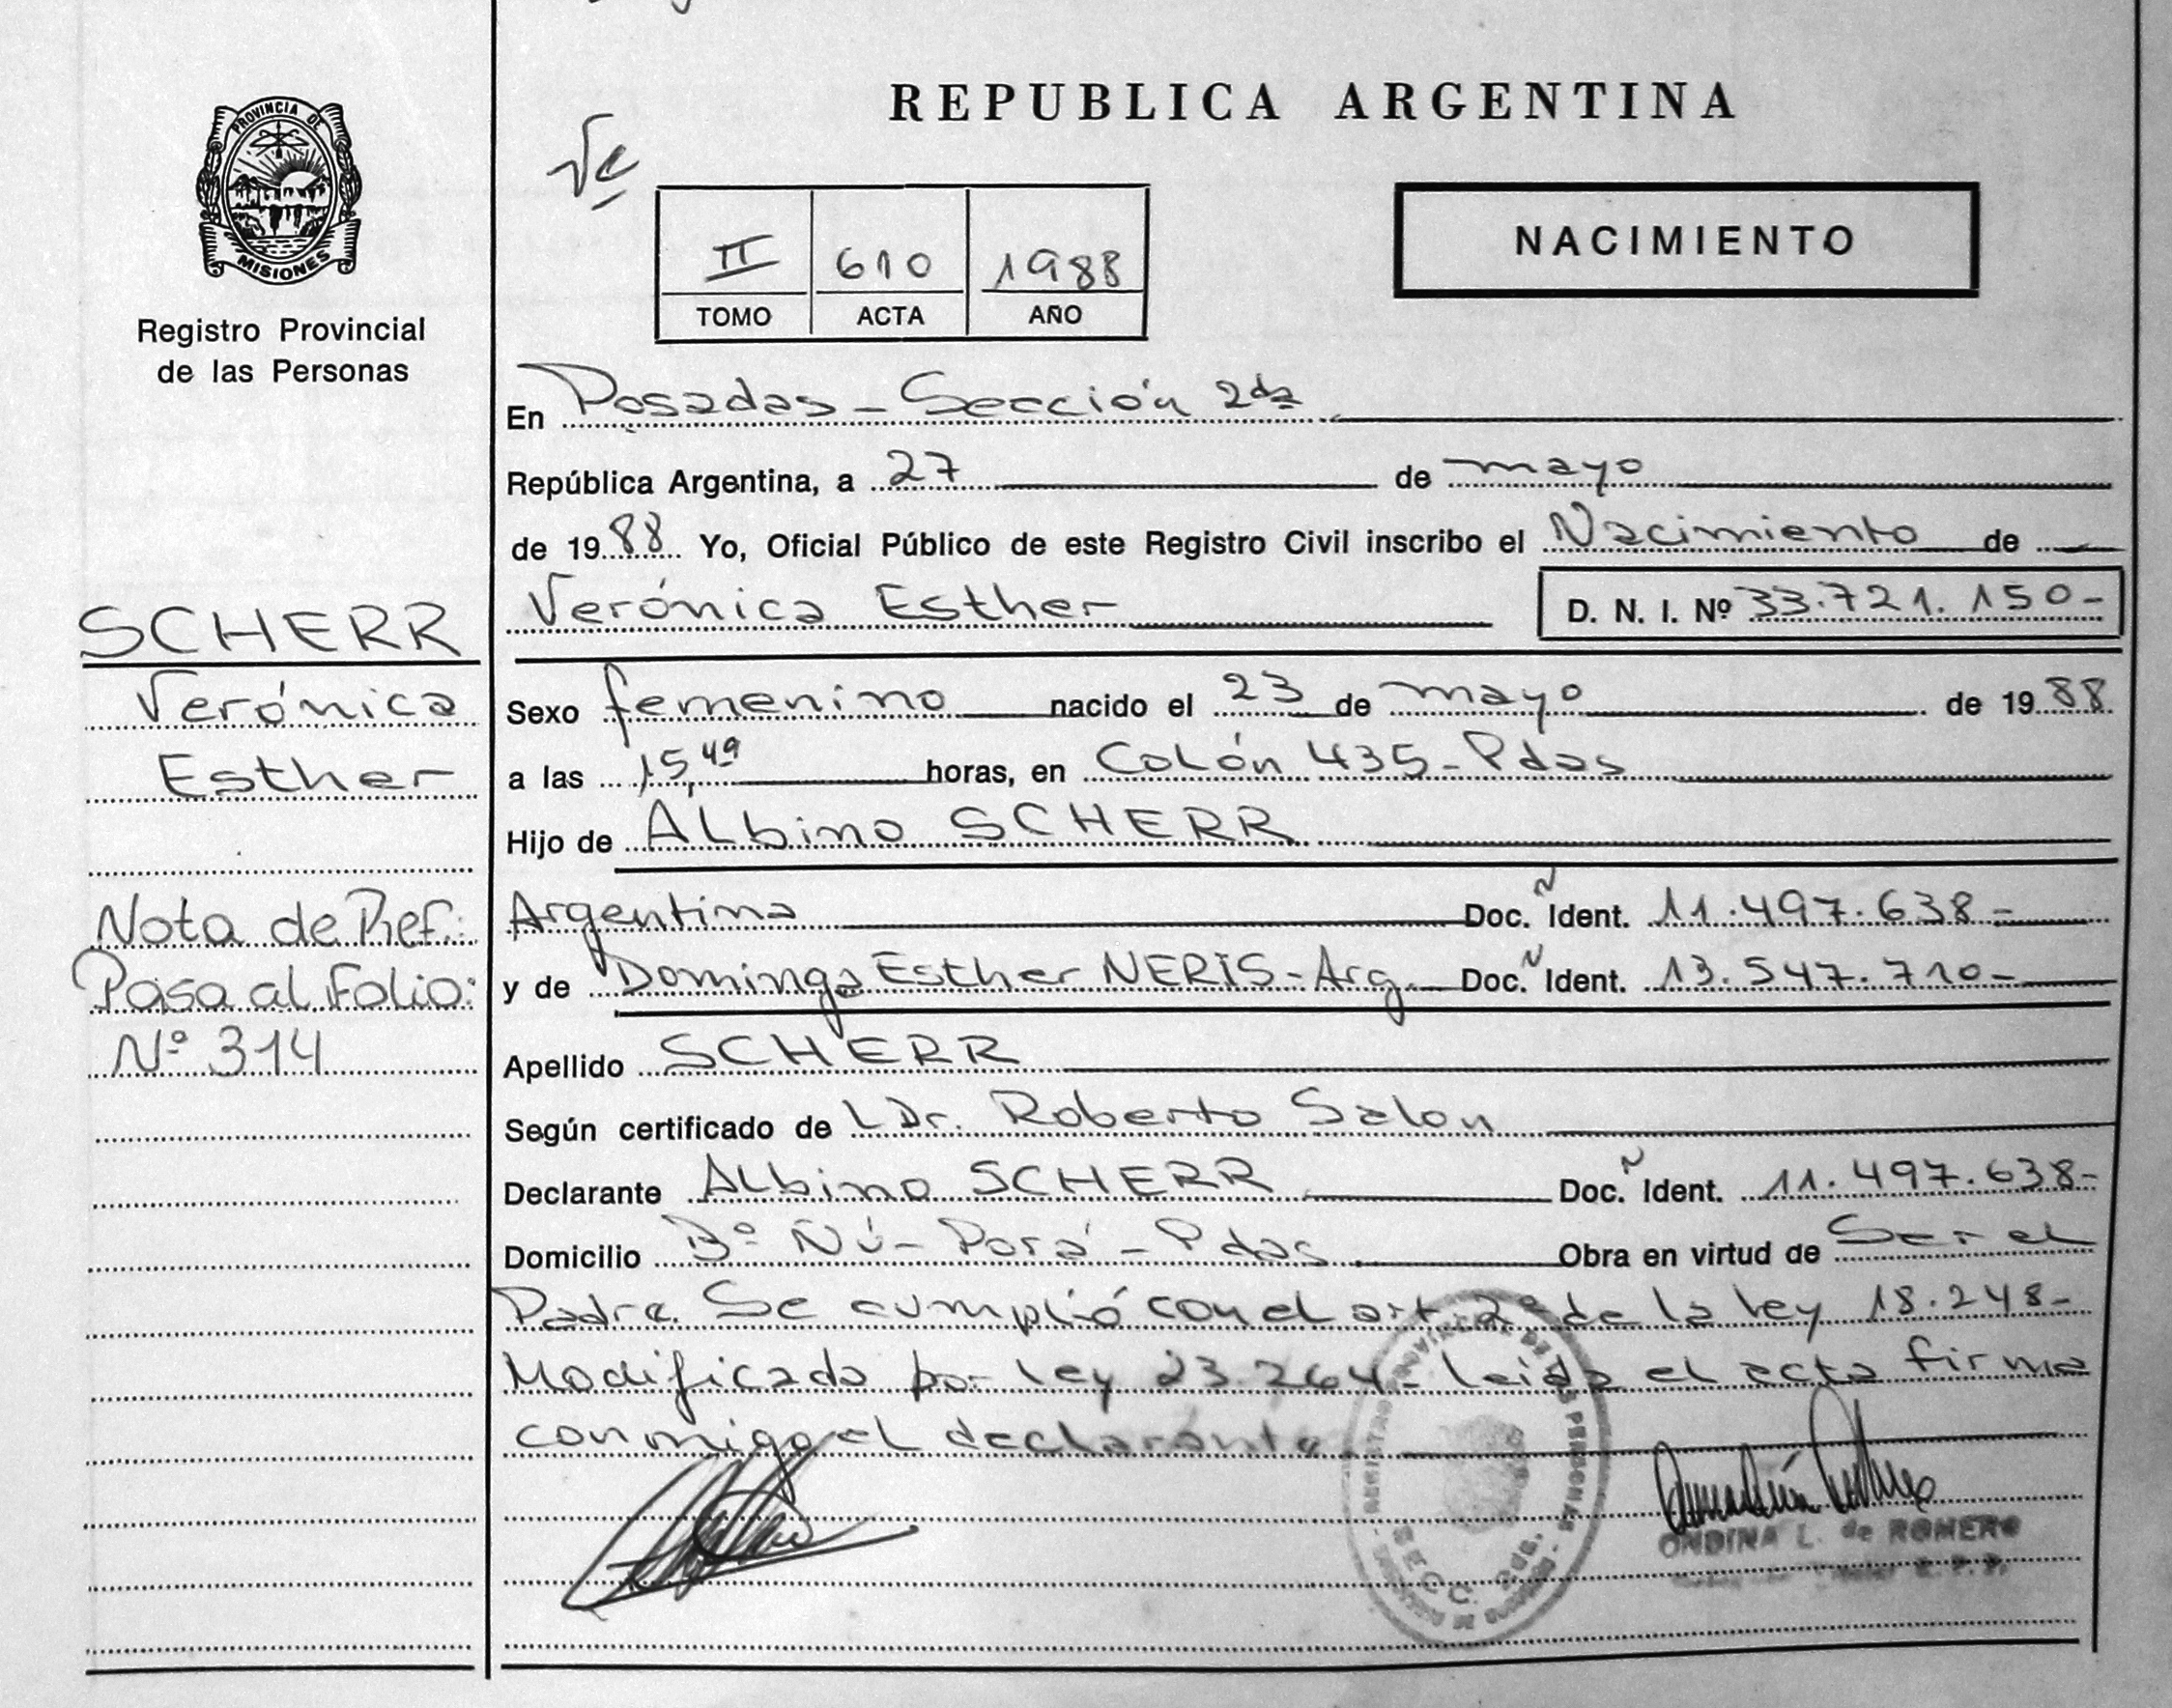 REPUBLICA ARGENTINA
PROVINCIA DE
MISIONES
Registro Provincial
de las Personas
NACIMIENTO
II 610 1988
TOMO ACTA AÑO
En Posadas - Sección 2da
República Argentina, a 27 de mayo
de 1988 Yo, Oficial Público de este Registro Civil inscribo el Nacimiento de
Verónica Esther D. N. I. Nº 33.721.150-
SCHERR
Verónica
Esther
Nota de Ref.:
Pasa al Folio:
Nº 314
Sexo femenino nacido el 23 de mayo de 1988
a las 15,49 horas, en Colón 435 - Pdas
Hijo de Albino SCHERR
Argentina Doc. Ident. 11.497.638-
y de Dominga Esther NERIS - Arg. Doc. Ident. 13.547.710-
Apellido SCHERR
Según certificado de Dr. Roberto Salon
Declarante Albino SCHERR Doc. Ident. 11.497.638-
Domicilio Bº Ñú - Porá - Pdas Obra en virtud de Ser el
Padre. Se cumplió con el art. 2º de la ley 18.248-
Modificado por ley 23.264- leida el acta firma
conmigo el declarante
REGISTRO PROVINCIAL DE LAS PERSONAS
SECC. 2da.
ONDINA L. de ROMERO